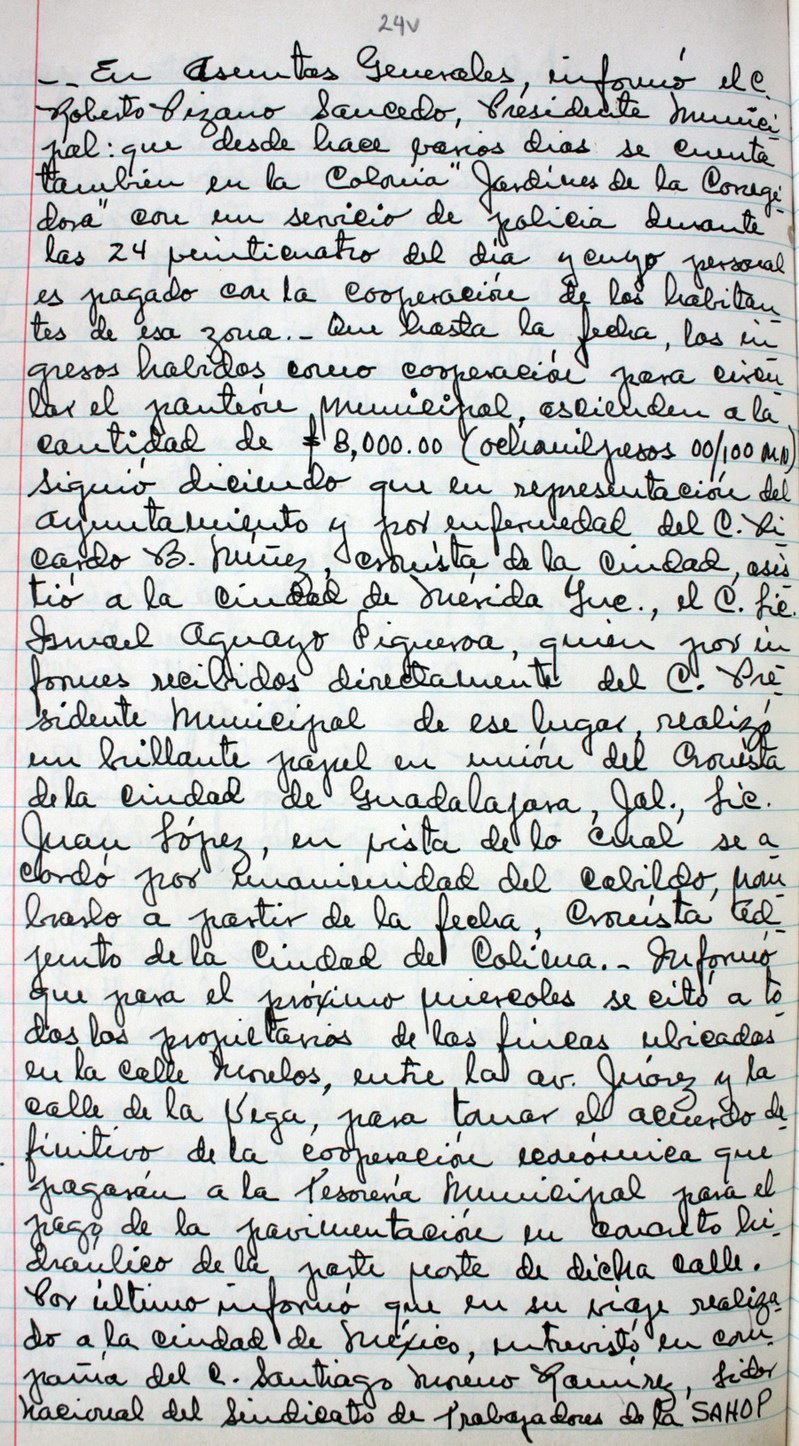 24v
-- En Asuntos Generales, informó el C.
Roberto Pizano Saucedo, Presidente Munici
pal: que desde hace varios dias se cuenta
también en la Colonia "Jardines de la Corregi-
dora" con un servicio de policia durante
las 24 veinticuatro del día y cuyo personal
es pagado con la cooperación de los habitan
tes de esa zona.- Que hasta la fecha, los in
gresos habidos como cooperación para circu
lar el panteón Municipal, ascienden a la
cantidad de $ 8,000.00 (ochomil pesos 00/100 M.N)
siguió diciendo que en representación del
Ayuntamiento y por enfermedad del C. Ri
cardo B. Núñez, cronista de la ciudad, asis
tió a la ciudad de Mérida Yuc., el C. Lic.
Ismael Aguayo Figueroa, quien por in
formes recibidos directamente del C. Pre-
sidente Municipal de ese lugar, realizó
un brillante papel en unión del Cronista
de la ciudad de Guadalajara, Jal., Lic.
Juan López, en vista de lo cual se a
cordó por unanimidad del cabildo, nom
brarlo a partir de la fecha, Cronista Ad-
junto de la Ciudad de Colima.- Informó
que para el próximo miercoles se citó a to
dos los propietarios de las fincas ubicadas
en la calle Morelos, entre la av. Juárez y la
calle de la Vega, para tomar el acuerdo de-
finitivo de la cooperación económica que
pagarán a la Tesorería Municipal para el
pago de la pavimentación en concreto hi-
dráulico de la parte norte de dicha calle.
Por último informó que en su viaje realiza-
do a la ciudad de México, entrevistó en com-
pañia del C. Santiago Moreno Ramírez, Lider
Nacional del Sindicato de Trabajadores de la SAHOP